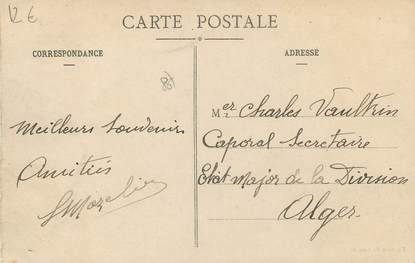 12 €
CARTE POSTALE
CORRESPONDANCE
ADRESSE
Meilleurs Souvenirs
Amitiés
Mer Charles Vaultrin
Caporal Secretaire
Etat Major de la Division
Alger.